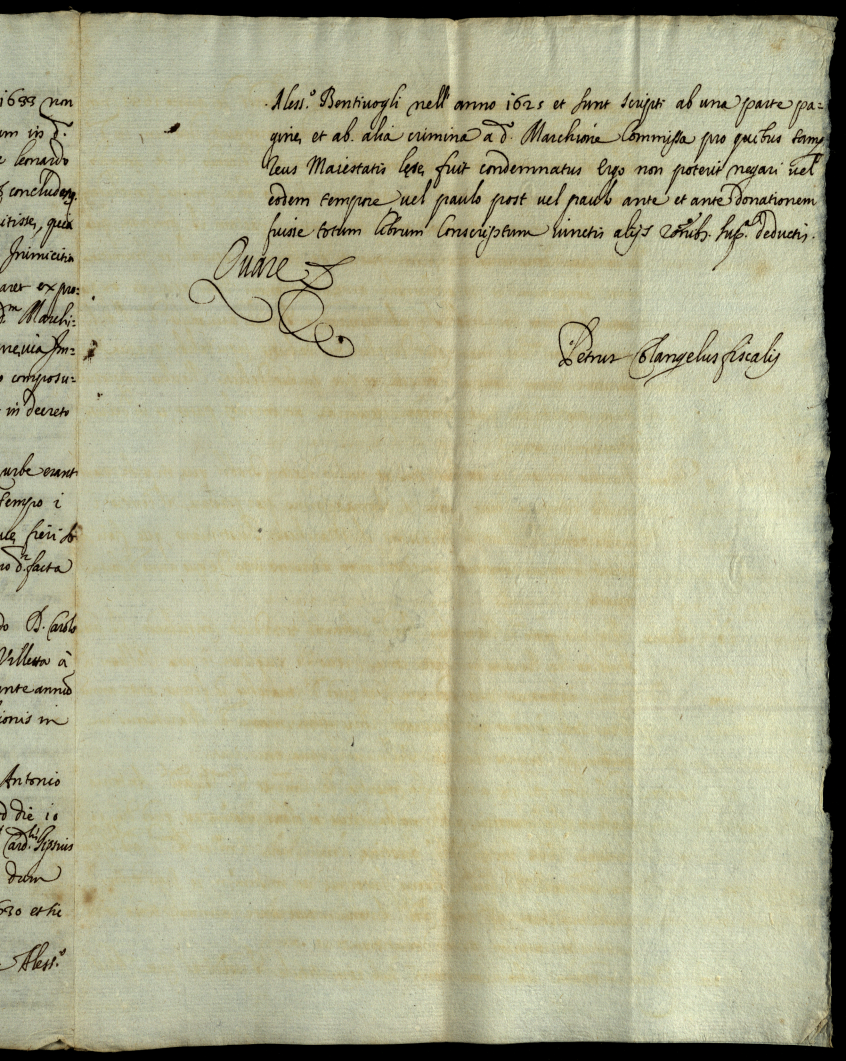 1633 non
um in d.
e lenardo
concludeng.
itisse, quia
Inimicitia
aret expro:
d.m Marchi:
neuia Im=
o composu:
in decreto
urbe erant
tempo i
ue, fieri
no d. facta
do D. Carolo
Villetta à
ante annũ
ionis in
Antonio
d die 10
Card.li Gipsius
dum
630 et hi
Aless.o
Aless.o Bentiuogli nell' anno 1625 et sunt scripti ab una parte pa=
gine, et ab. alia crimina a d. Marchione Commissa pro quibus tamq
reus Maiestatis lęse, fuit condemnatus Ergo non poterit negari uel
eodem tempore uel paulo post uel paulo ante et ante donationem
fuisse totum librum Conscriptum iunctis alijs sup.a deductis.
Quare &
Petrus Colangelus fiscalis